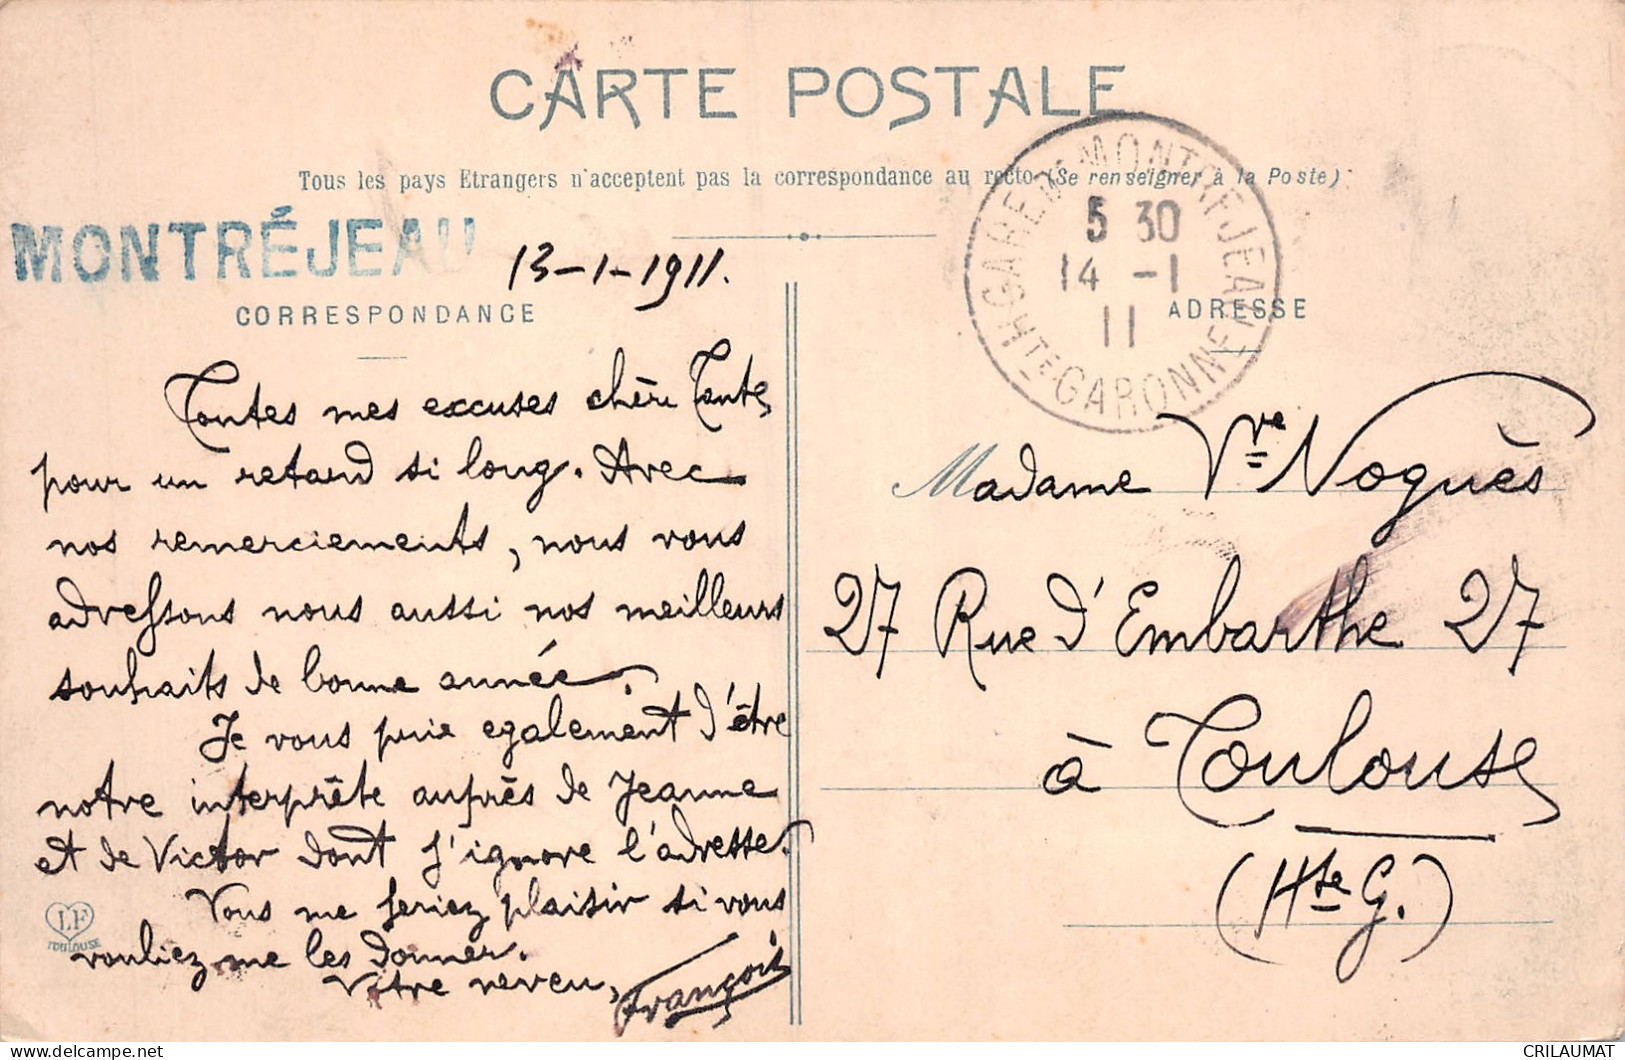 CARTE POSTALE
Tous les pays Etrangers n'acceptent pas la correspondance au recto (Se renseigner à la Poste)
MONTRÉJEAU
13-1-1911.
GARE DE MONTREJEAU
5 30
14 -1
11
HTE GARONNE
CORRESPONDANCE
ADRESSE
Toutes mes excuses chère Tante,
pour un retard si long. Avec
nos remerciements, nous vous
adressons nous aussi nos meilleurs
souhaits de bonne année.
Je vous prie egalement d'être
notre interprète auprès de Jeanne
et de Victor dont j'ignore l'adresse.
Vous me feriez plaisir si vous
vouliez me les donner.
Votre neveu, François
LF
TOULOUSE
Madame Vve Noguès
27 Rue d'Embarthe 27
à Toulouse
(Hte G.)
CRILAUMAT